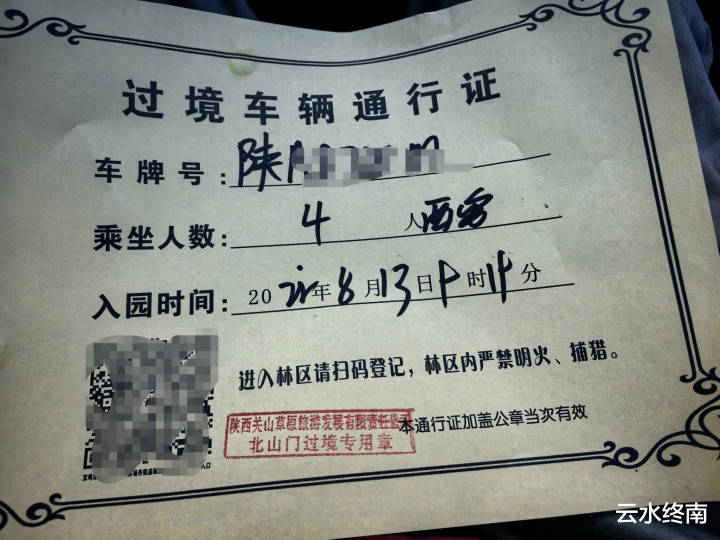 过境车辆通行证
车牌号：陕
乘坐人数：4人
入园时间：20 年8月13日 时 分
进入林区请扫码登记，林区内严禁明火、捕猎。
陕西关山草原旅游发展有限责任公司
北山门过境专用章
本通行证加盖公章当次有效
云水终南